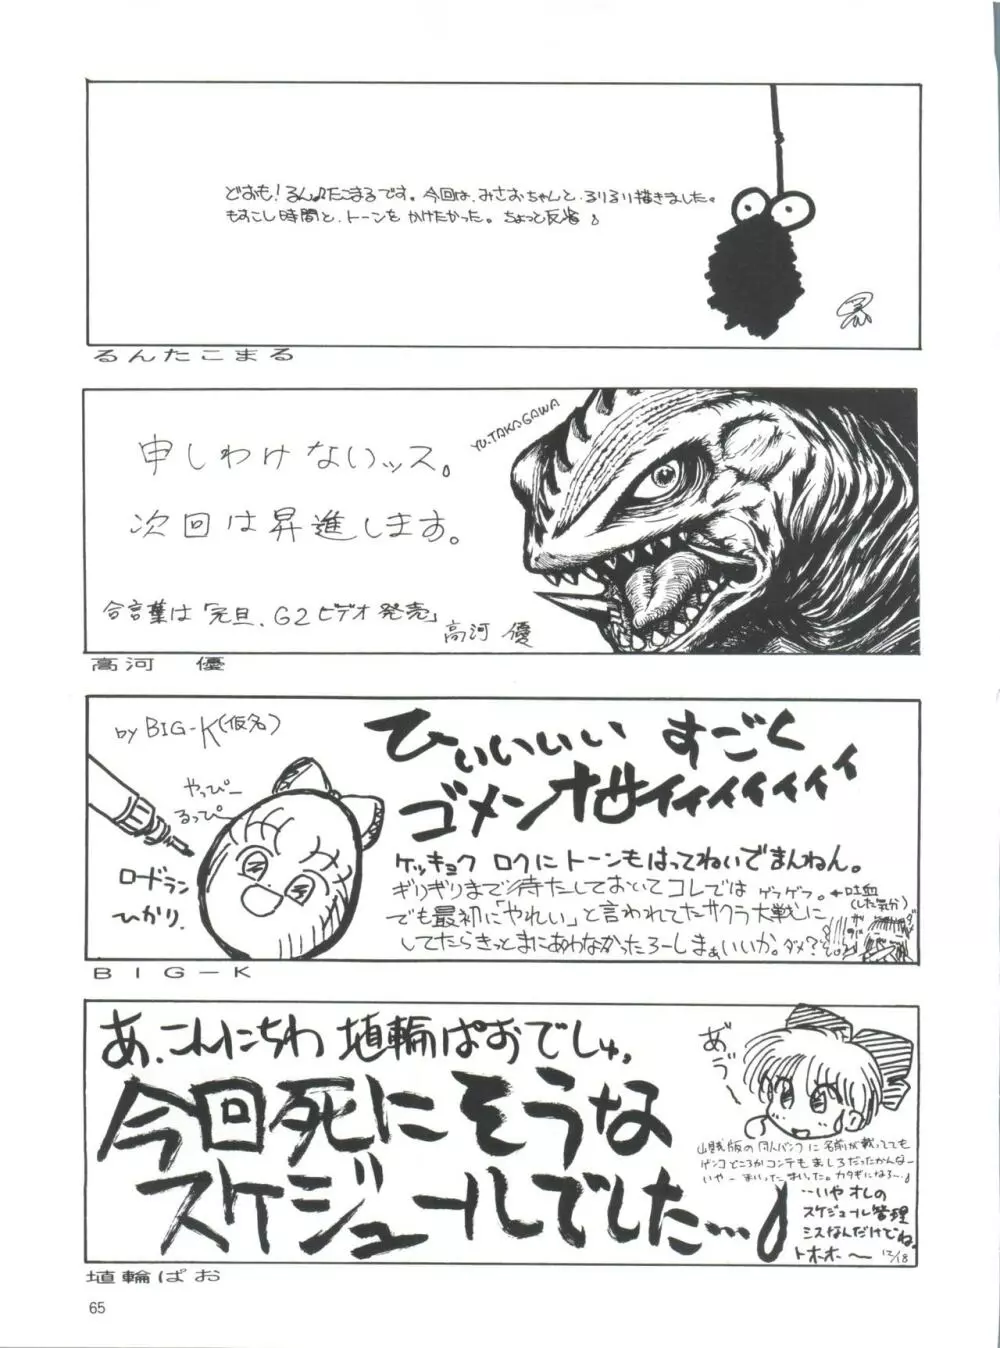 どおも!るん♪たこまるです。今回は、みさおちゃんと、るりるり描きました。
もすこし時間と、トーンを かけたかった。ちょっと反省♪
るんたこまる
YU.TAKAGAWA
申しわけないッス。
次回は昇進します。
合言葉は「元旦、G2ビデオ発売」
高河 優
高河 優
by BIG-K(仮名)
やっぴー
るっぴー
ロードラン
ひかり.
ひぃぃぃぃ すごく
ゴメンナサイィィィィィィ
ケッキョク ロクにトーンもはってねいでまんねん。
ギリギリまで待たしておいてコレでは ゲラゲフ。←吐血(した気分)
でも最初に「やれい」と言われてたサクラ大戦に
してたらきっとまにあわなかったろーしまぁいいか。ダメ?
BIG-K
あ、こんにちわ 埴輪ぱおでしゅ,
今回死にそうな
スケジュールでした…♪
あ゛う゛ー
山賊版の同人バンクに名前が載ってても
ゲンコどころかコンテもましろだったかんなー
いやーまいったまいった。カタギになろ…♪
…いやオレの
スケジュール管理
ミスなんだけでね。
トホホ〜 12/18
埴輪ぱお
65